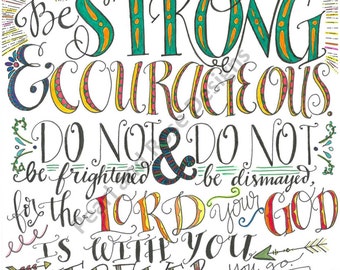 Be STRONG
& COURAGEOUS.
DO NOT & DO NOT
be frightened be dismayed,
for the LORD your GOD
IS WITH YOU
you go